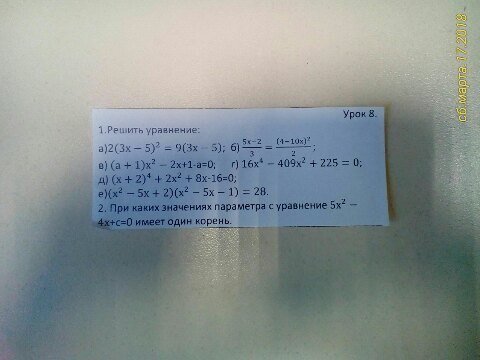 Урок 8.
1.Решить уравнение:
а)2(3x − 5)² = 9(3x − 5); б) (5x−2)/3 = (4−10x)²/2;
в) (a + 1)x² − 2x+1-a=0; г) 16x⁴ − 409x² + 225 = 0;
д) (x + 2)⁴ + 2x² + 8x-16=0;
е)(x² − 5x + 2)(x² − 5x − 1) = 28.
2. При каких значениях параметра с уравнение 5x² −
4x+c=0 имеет один корень.
сб марта.17.2018